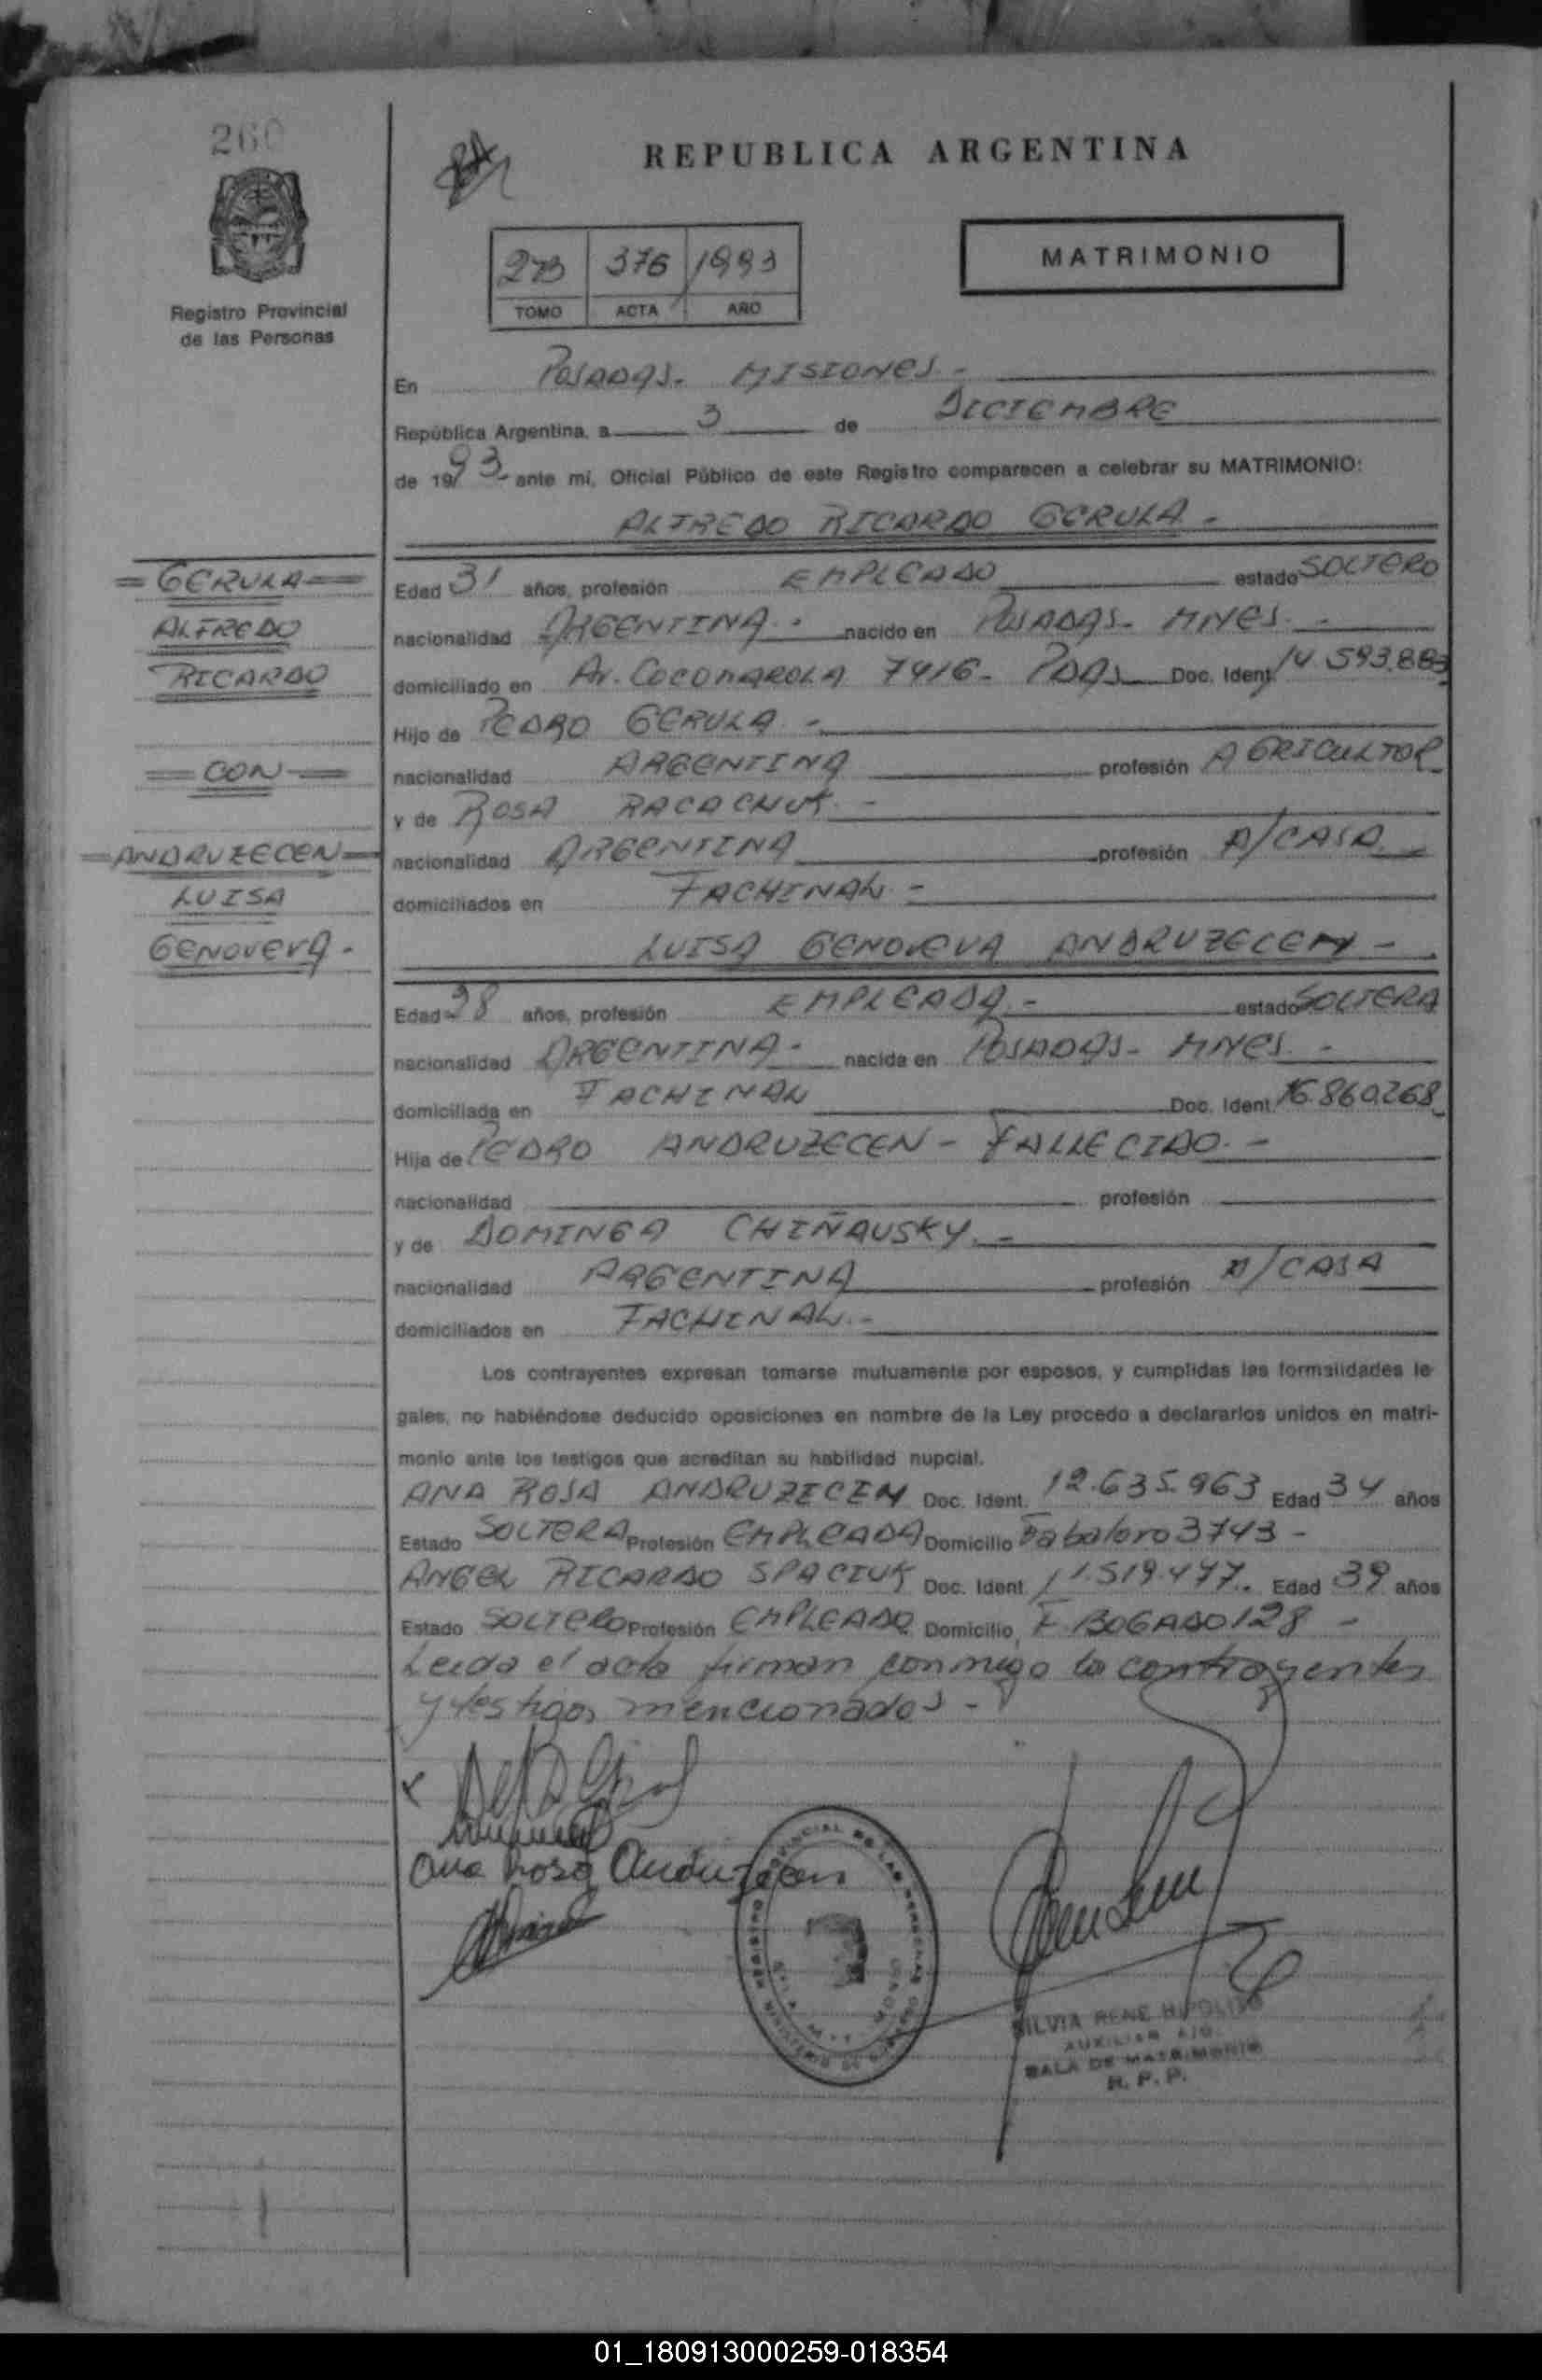 260
REPUBLICA ARGENTINA
273 376 1993
TOMO ACTA AÑO
MATRIMONIO
Registro Provincial
de las Personas
En POSADAS- MISIONES-
República Argentina, a 3 de DICIEMBRE
de 1993 ante mí, Oficial Público de este Registro comparecen a celebrar su MATRIMONIO:
ALFREDO RICARDO GERULA-
=GERULA=
ALFREDO
RICARDO
=CON=
=ANDRUZECEN=
LUISA
GENOVEVA-
Edad 31 años, profesión EMPLEADO estado SOLTERO
nacionalidad ARGENTINA- nacido en POSADAS- MNES.-
domiciliado en Av. COCOMAROLA 7416- PDAS Doc. Ident. 14.593.883
Hijo de PEDRO GERULA-
nacionalidad ARGENTINA profesión AGRICULTOR
y de ROSA RACACHUK-
nacionalidad ARGENTINA profesión A/CASA
domiciliados en FACHINAL-
LUISA GENOVEVA ANDRUZECEN-
Edad 28 años, profesión EMPLEADA- estado SOLTERA
nacionalidad ARGENTINA- nacida en POSADAS- MNES-
domiciliada en FACHINAL Doc. Ident. 16.860.268
Hija de PEDRO ANDRUZECEN- FALLECIDO.-
nacionalidad profesión
y de DOMINGA CHIÑAUSKY.-
nacionalidad ARGENTINA profesión A/CASA
domiciliados en FACHINAL.-
Los contrayentes expresan tomarse mutuamente por esposos, y cumplidas las formalidades le
gales, no habiéndose deducido oposiciones en nombre de la Ley procedo a declararlos unidos en matri-
monio ante los testigos que acreditan su habilidad nupcial.
ANA ROSA ANDRUZECEN Doc. Ident. 12.635.963 Edad 34 años
Estado SOLTERA Profesión EMPLEADA Domicilio 3743-
ANGEL RICARDO SPACIUK Doc. Ident. 11.519.477. Edad 39 años
Estado SOLTERO Profesión EMPLEADO Domicilio F. BOGADO 128-
Leida el acta firman conmigo los contrayentes
y testigos mencionados-
Ana Rosa Andruzecen
SILVIA RENE HIPOLITO
AUXILIAR
SALA DE MATRIMONIO
R. P. P.
01_180913000259-018354